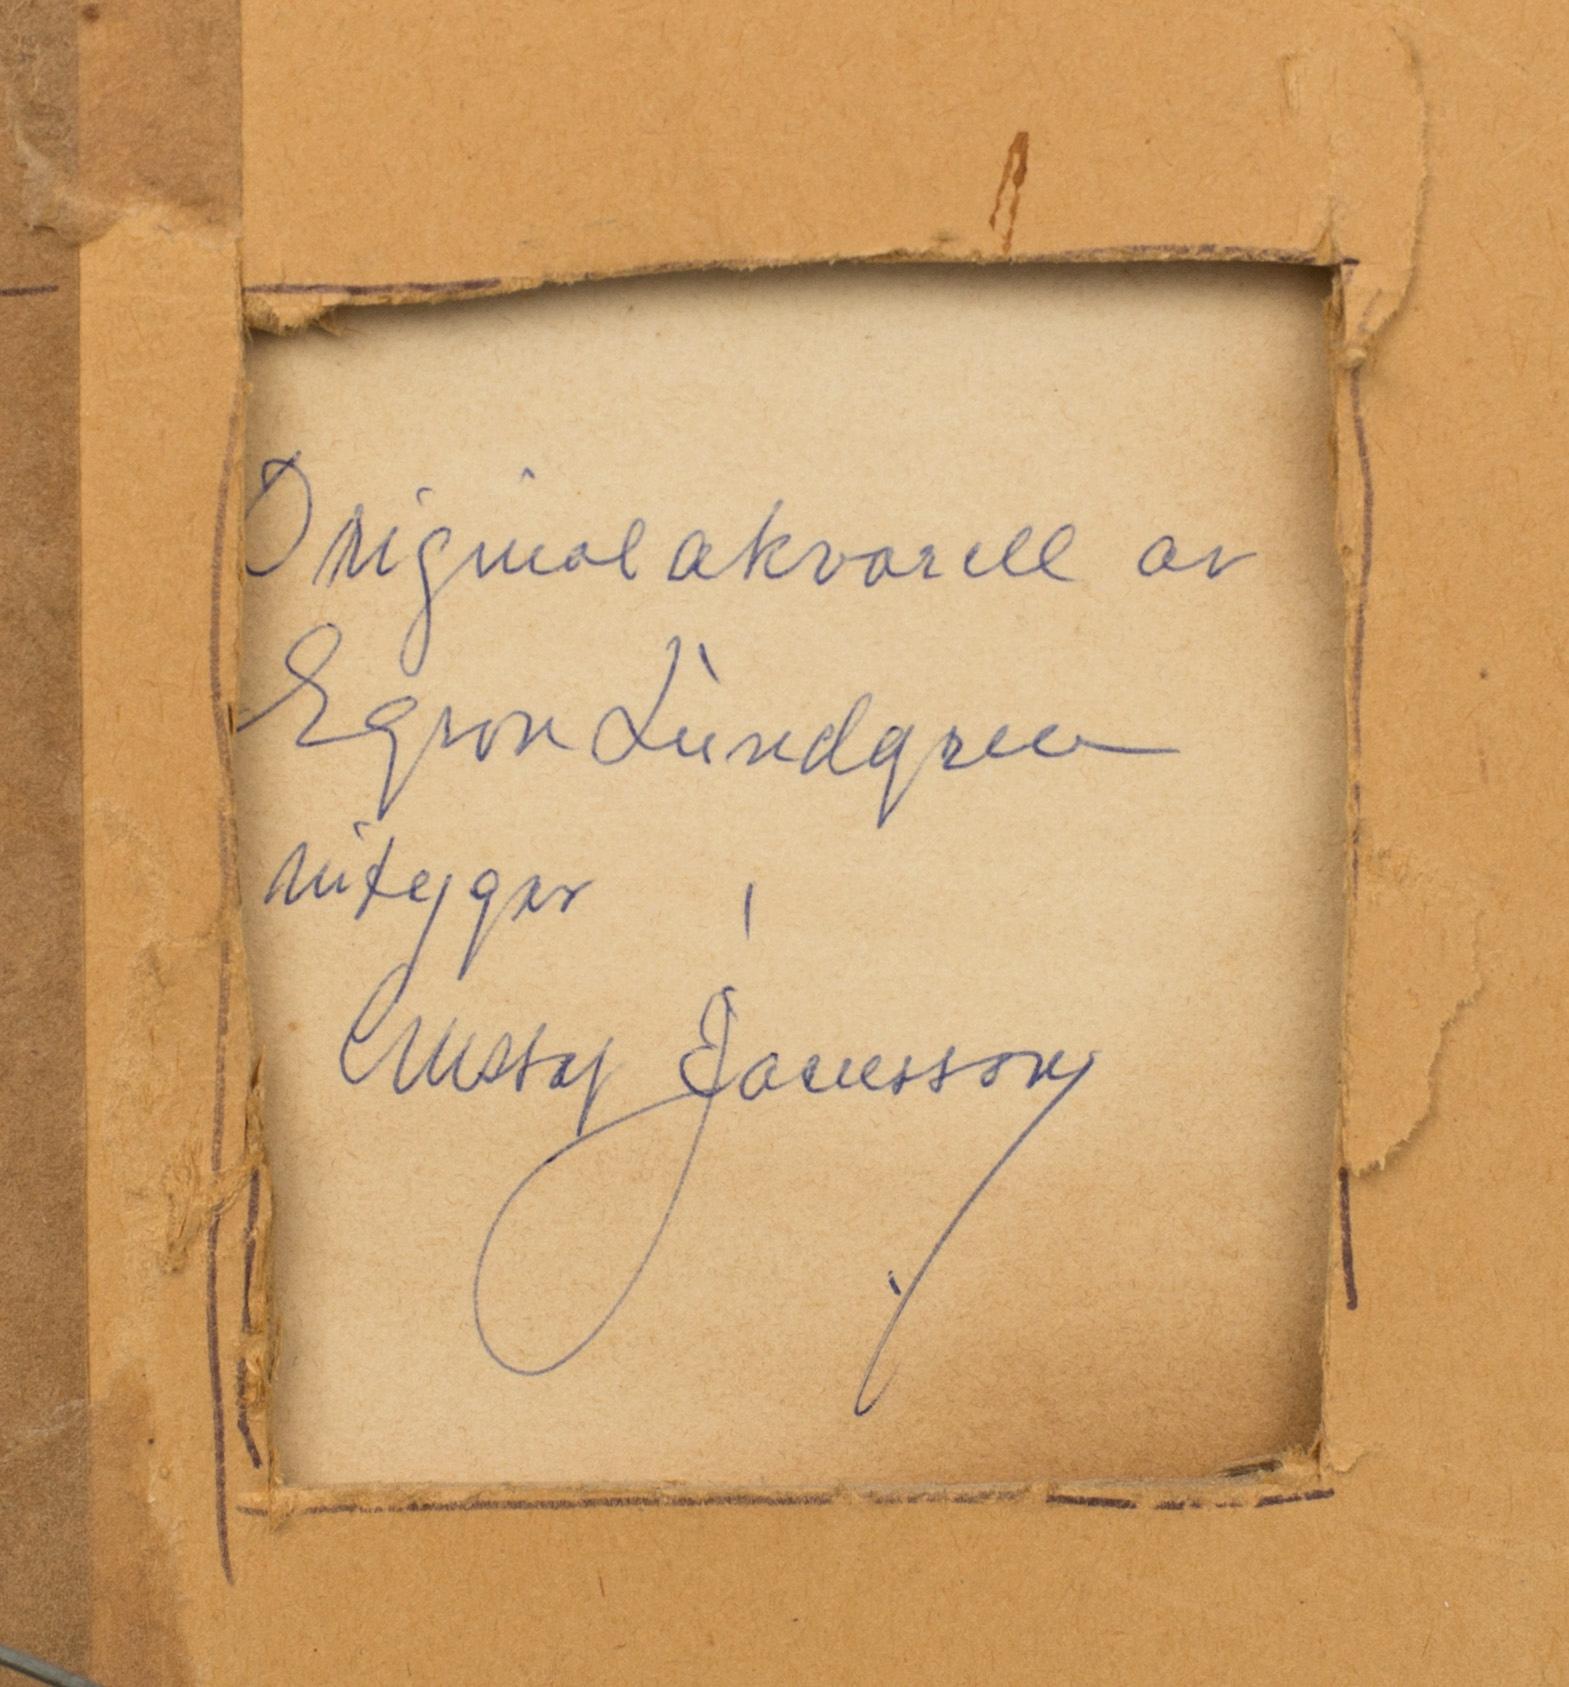 Original akvarell av
Egron Lundgren
intygar
Gustaf Jansson